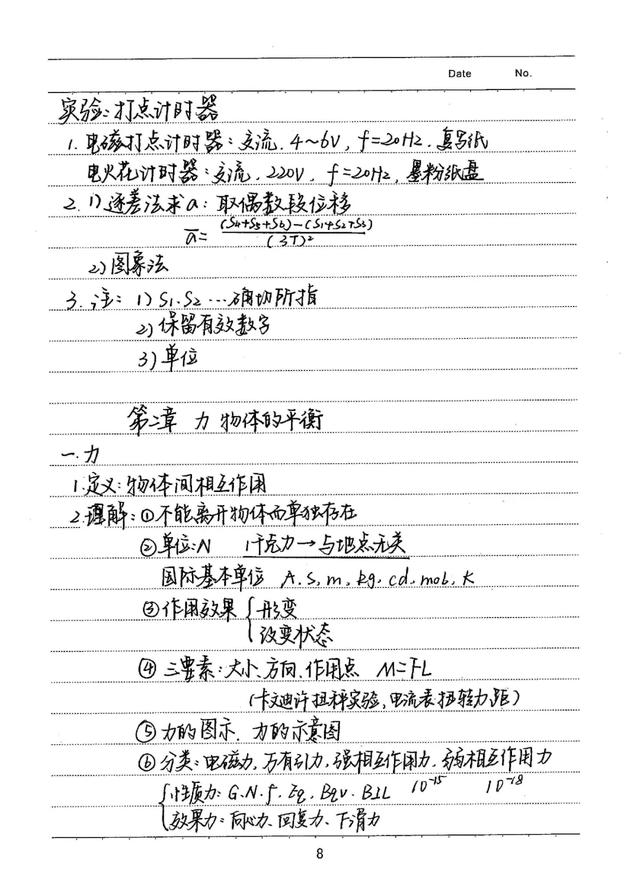 Date No.
实验:打点计时器
1. 电磁打点计时器:交流, 4~6V, f=20Hz, 复写纸
电火花计时器:交流, 220V, f=20Hz, 墨粉纸盘
2. 1) 逐差法求a:取偶数段位移
a̅=((S4+S5+S6)-(S1+S2+S3))/(3T)²
2) 图象法
3. 注: 1) S1. S2 …确切所指
2) 保留有效数字
3) 单位
第二章 力 物体的平衡
一. 力
1. 定义:物体间相互作用
2. 理解:①不能离开物体而单独存在
②单位:N 1千克力→与地点无关
国际基本单位 A. s, m, kg, cd, mol, K
③作用效果{形变
改变状态
④三要素:大小、方向、作用点 M=FL
(卡文迪许扭秤实验, 电流表扭转力距)
⑤力的图示、力的示意图
⑥分类:电磁力, 万有引力, 强相互作用力, 弱相互作用力
{性质力: G. N. f. Eq. Bqv. BIL 10⁻¹⁵ 10⁻¹⁸
效果力:向心力、回复力、下滑力
8